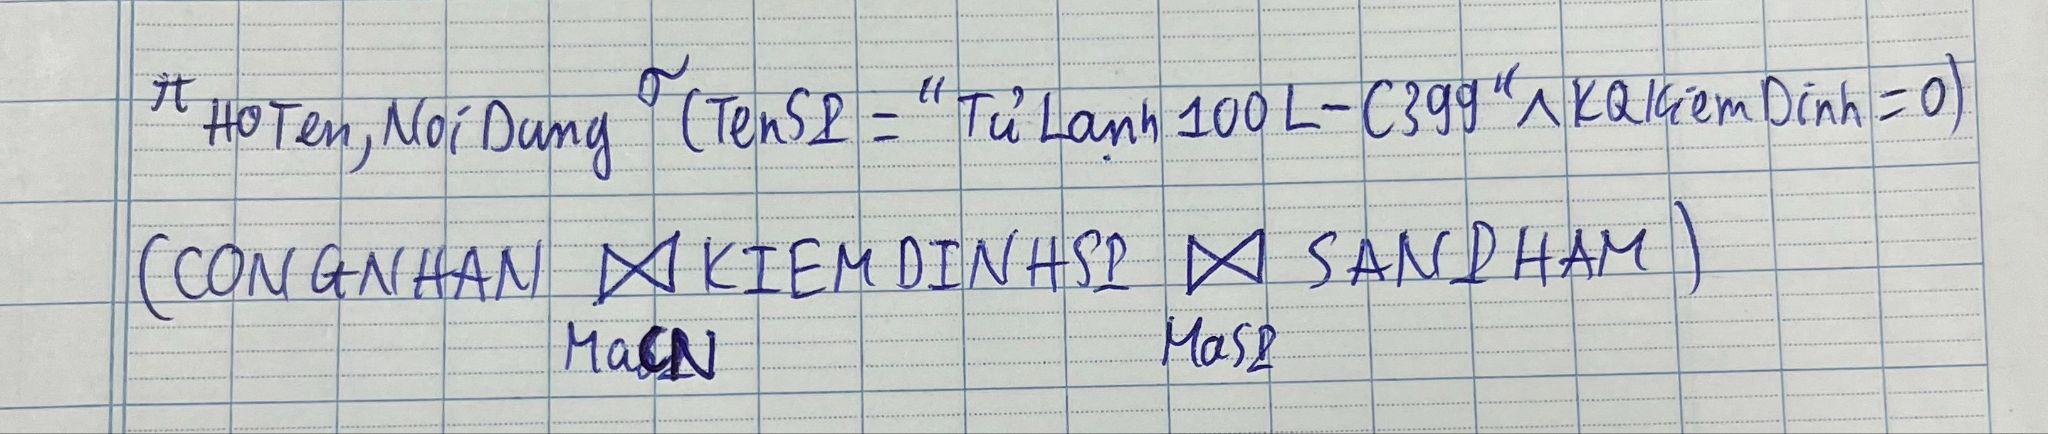 π HoTen, NoiDung σ (TenSP = "Tủ Lạnh 100L-C399" ∧ KQKiemDinh = 0)
(CONGNHAN ⋈ KIEMDINHSP ⋈ SANPHAM)
MaCN MaSP